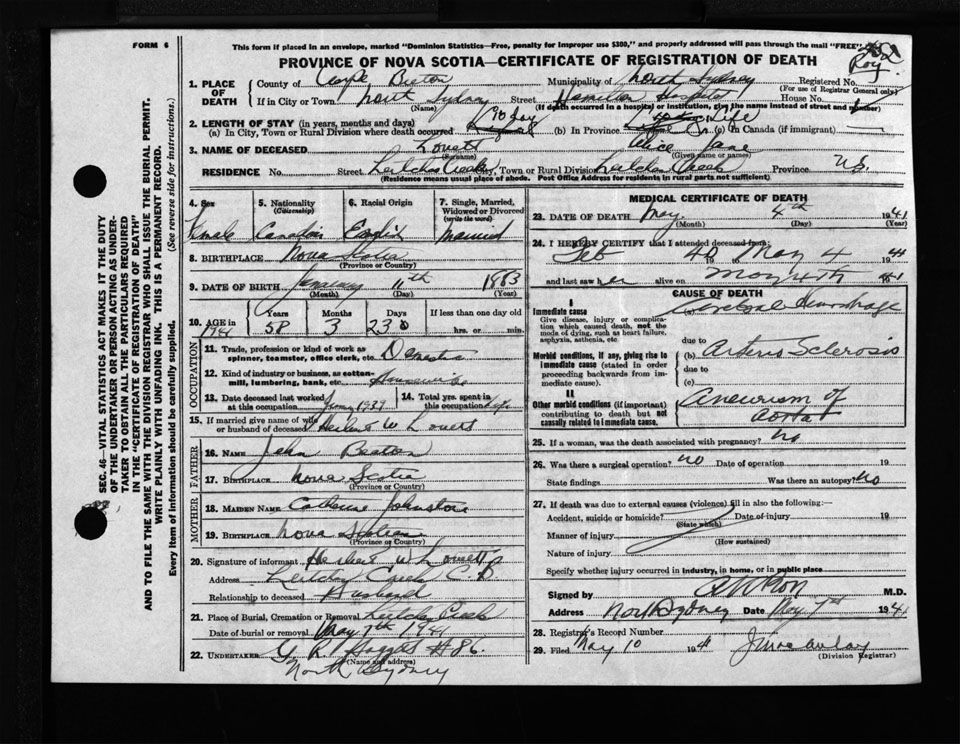 FORM 6
This form if placed in an envelope, marked "Dominion Statistics—Free, penalty for improper use $300," and properly addressed will pass through the mail "FREE"
Roy
PROVINCE OF NOVA SCOTIA—CERTIFICATE OF REGISTRATION OF DEATH
1. PLACE OF DEATH
County of Cape Breton Municipality of North Sydney Registered No.
(For use of Registrar General only)
If in City or Town North Sydney Street Hamilton Hospital House No.
(Name) (If death occurred in a hospital or institution, give the name instead of street and number)
2. LENGTH OF STAY (in years, months and days)
(a) In City, Town or Rural Division where death occurred 90 day (b) In Province Life (c) In Canada (if immigrant)
3. NAME OF DECEASED Lovett Alice Jane
(Surname) (Given name or names)
RESIDENCE No. Street Leitches Creek City, Town or Rural Division Leitches Creek Province N.S.
(Residence means usual place of abode. Post Office Address for residents in rural parts not sufficient)
4. Sex
Female
5. Nationality
(Citizenship)
Canadian
6. Racial Origin
English
7. Single, Married, Widowed or Divorced
(write the word)
Married
8. BIRTHPLACE Nova Scotia
(Province or Country)
9. DATE OF BIRTH January 11th 1883
(Month) (Day) (Year)
10. AGE in 1941
Years Months Days If less than one day
58 3 23 hrs. or min.
OCCUPATION
11. Trade, profession or kind of work as spinner, teamster, office clerk, etc. Domestic
12. Kind of industry or business, as cotton-mill, lumbering, bank, etc. Housewife
13. Date deceased last worked at this occupation 1939
14. Total yrs. spent in this occupation Life
15. If married give name of wife or husband of deceased Herbert W Lovett
FATHER
16. NAME John Beaton
17. BIRTHPLACE Nova Scotia
(Province or Country)
MOTHER
18. MAIDEN NAME Catherine Johnstone
19. BIRTHPLACE Nova Scotia
(Province or Country)
20. Signature of informant Herbert W Lovett
Address Leitches Creek C B
Relationship to deceased Husband
21. Place of Burial, Cremation or Removal Leitches Creek
Date of burial or removal May 7th 1941
22. UNDERTAKER #86.
(Name and address)
North Sydney
MEDICAL CERTIFICATE OF DEATH
23. DATE OF DEATH May 4th 1941
(Month) (Day) (Year)
24. I HEREBY CERTIFY that I attended deceased from:
Feb 4 19 to May 4 1941
and last saw her alive on May 4th 1941
CAUSE OF DEATH
I
Immediate cause
Give disease, injury or complication which caused death, not the mode of dying, such as heart failure, asphyxia, asthenia, etc.
Cerebral Hemorrhage
due to
Morbid conditions, if any, giving rise to immediate cause (stated in order proceeding backwards from immediate cause).
(b) Arterio Sclerosis
due to
(c)
II
Other morbid conditions (if important) contributing to death but not causally related to immediate cause.
Aneurism of aorta
25. If a woman, was the death associated with pregnancy? No
26. Was there a surgical operation? No Date of operation 19
State findings Was there an autopsy? No
27. If death was due to external causes (violence) fill in also the following:—
Accident, suicide or homicide? Date of injury 19
(State which)
Manner of injury
(How sustained)
Nature of injury
Specify whether injury occurred in industry, in home, or in public place
Signed by M.D.
Address North Sydney Date May 7th 1941
28. Registrar's Record Number
29. Filed May 10 1941
(Division Registrar)
SEC. 46—VITAL STATISTICS ACT MAKES IT THE DUTY
OF THE UNDERTAKER OR PERSON ACTING AS UNDER-
TAKER TO OBTAIN ALL THE PARTICULARS REQUIRED
IN THE "CERTIFICATE OF REGISTRATION OF DEATH"
AND TO FILE THE SAME WITH THE DIVISION REGISTRAR WHO SHALL ISSUE THE BURIAL PERMIT.
WRITE PLAINLY WITH UNFADING INK. THIS IS A PERMANENT RECORD.
Every item of information should be carefully supplied. (See reverse side for instructions.)